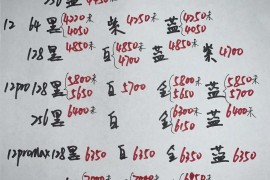 12 64黑{4220未 4050 柴4250 蓝{4250未 4050
128黑{4850未 白{4850未 4700 蓝4850未 柴4700
12pro128黑{5800未 5650 白5700 金{5800未 5650 蓝{5850未 5700
256黑6400未 白 金{6300未 6150 蓝6400未
12promax128黑6350 白6350 金6350 蓝6350